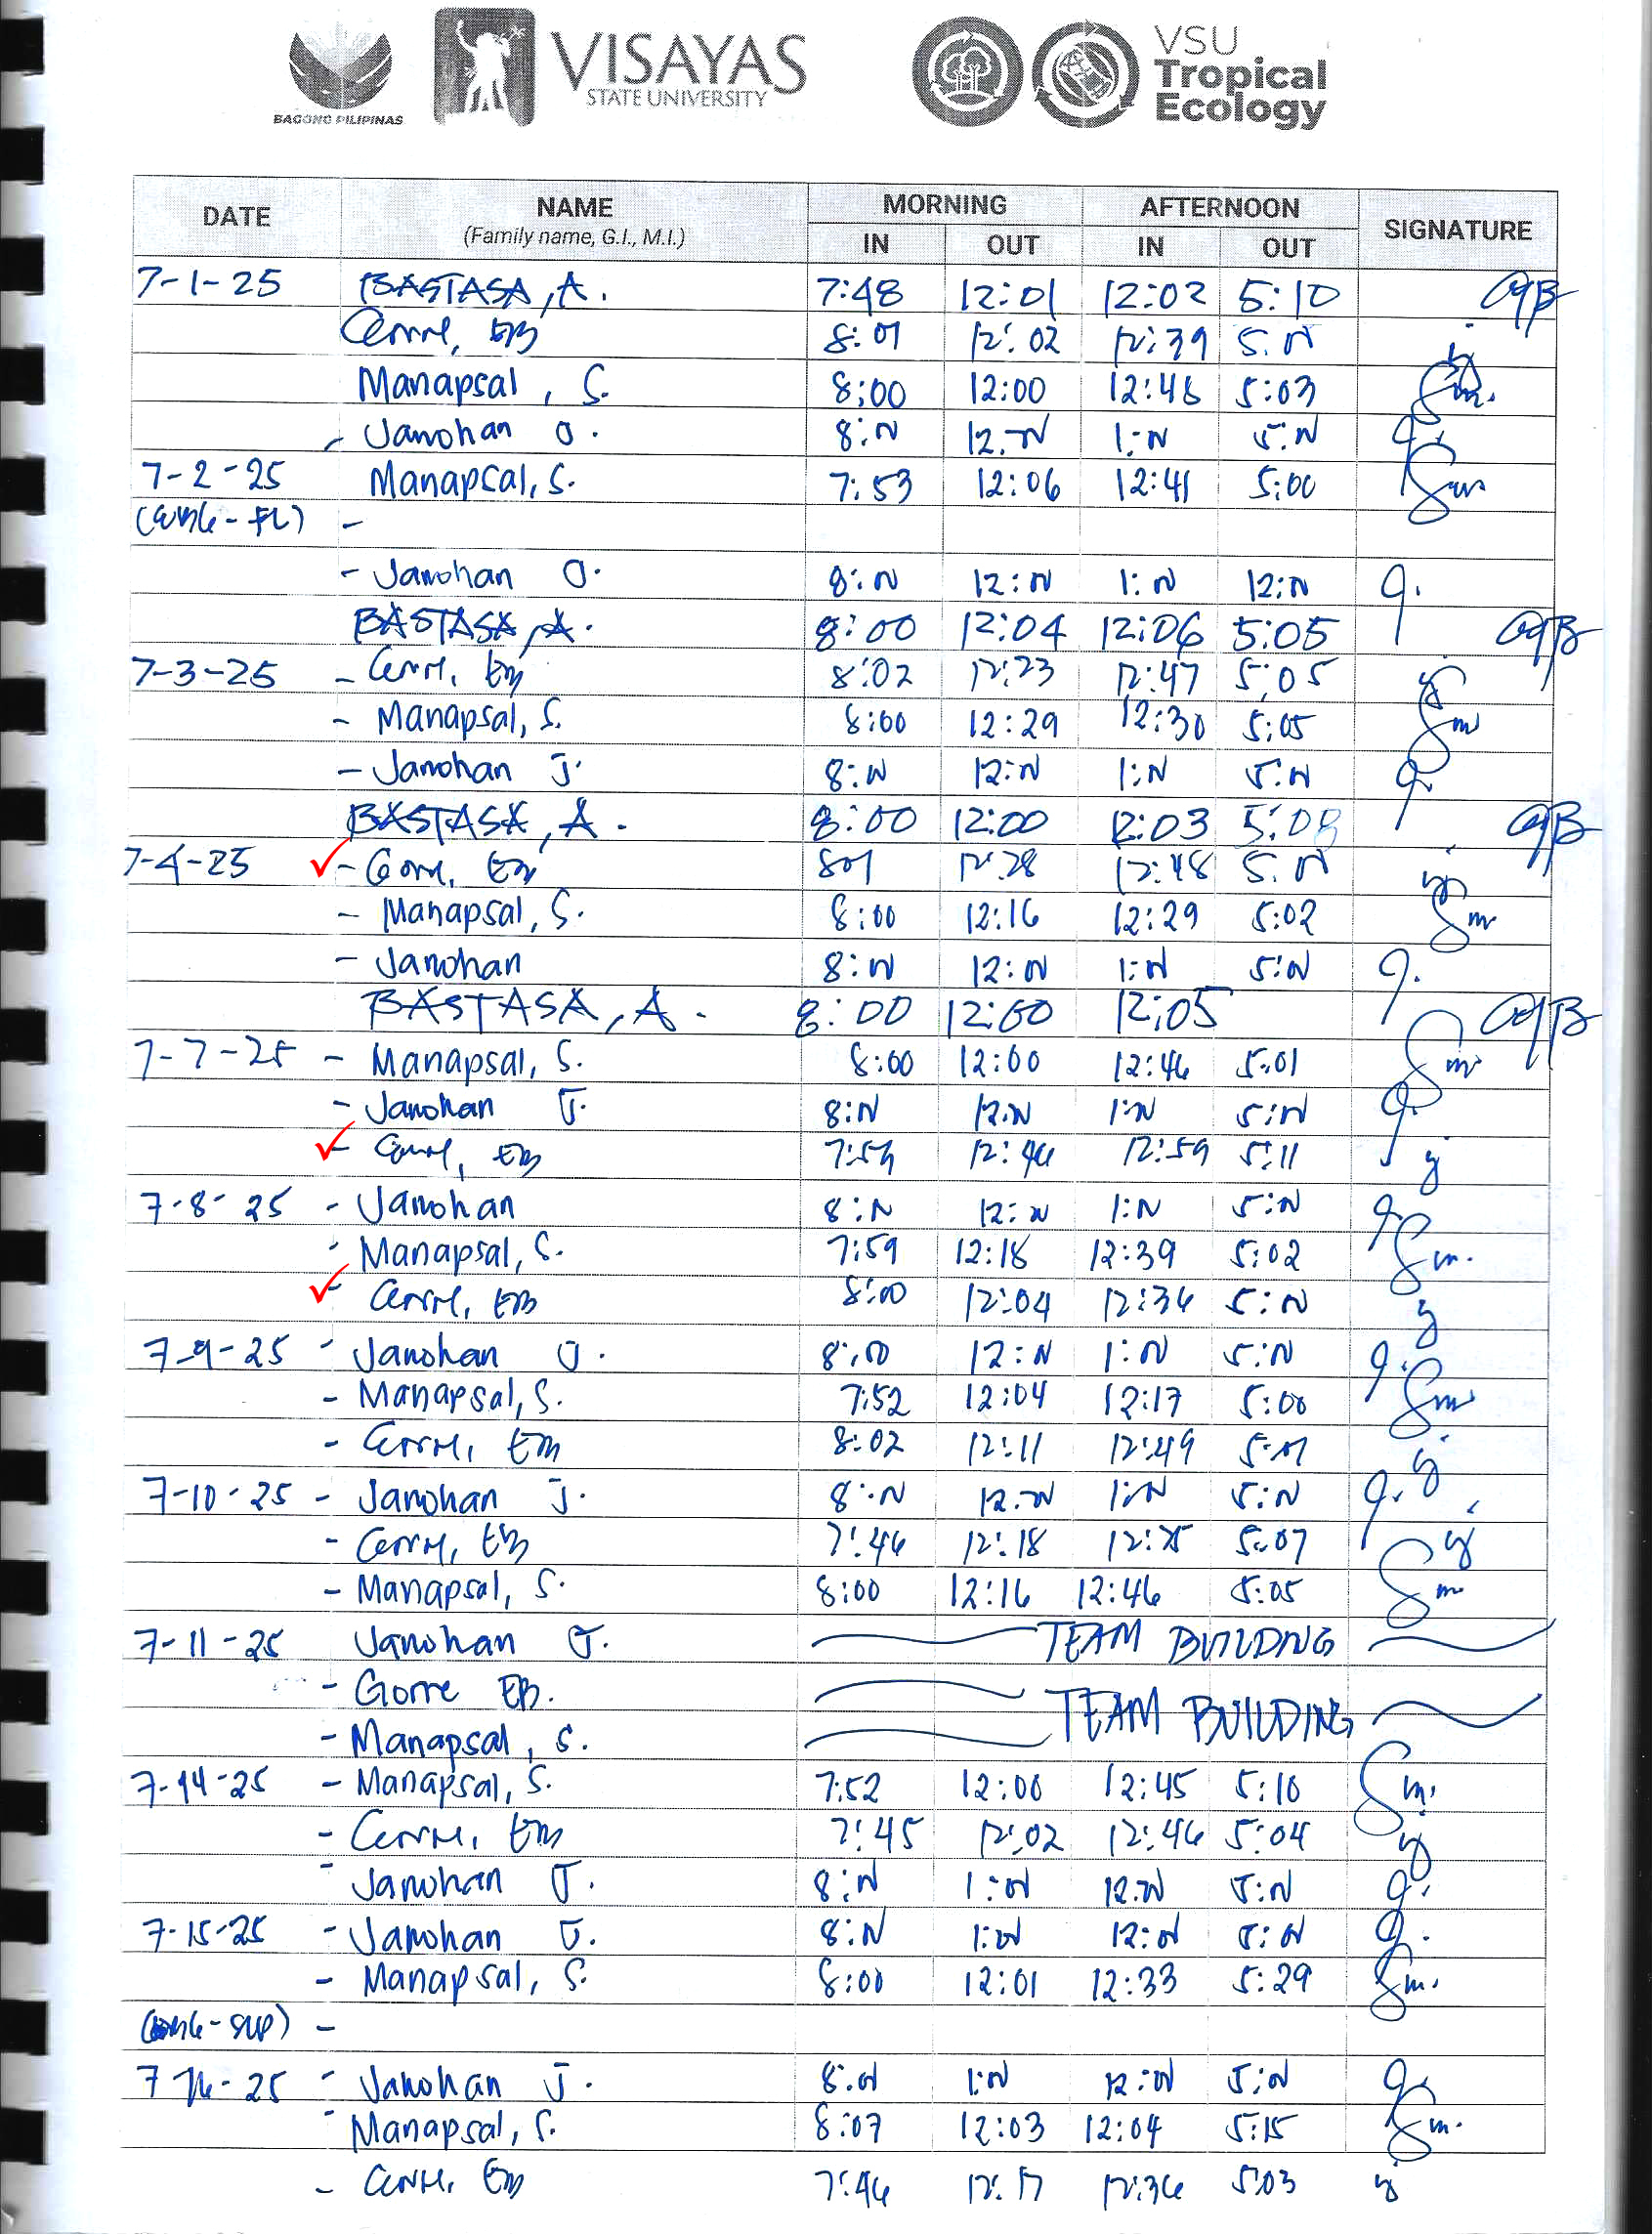 BAGONG PILIPINAS
VISAYAS
STATE UNIVERSITY
VSU
Tropical
Ecology
DATE NAME (Family name, G.I., M.I.) MORNING IN OUT AFTERNOON IN OUT SIGNATURE
7-1-25 BASTASA, A. 7:48 12:01 12:02 5:10
Gorre, EB 8:01 12:02 12:39 5:N
Manapsal, S. 8:00 12:00 12:48 5:03
- Janohan J. 8:N 12:N 1:N 5:N
7-2-25 Manapsal, S. 7:53 12:06 12:41 5:00
-
- Janohan J. 8:N 12:N 1:N 12:N
BASTASA, A. 8:00 12:04 12:06 5:05
7-3-25 - Gorre, EB 8:02 12:23 12:47 5:05
- Manapsal, S. 8:00 12:29 12:30 5:05
- Janohan J. 8:N 12:N 1:N 5:N
BASTASA, A. 8:00 12:00 12:03 5:08
7-4-25 - Gorre, EB 801 12:28 12:48 5:N
- Manapsal, S. 8:00 12:16 12:29 5:02
- Janohan 8:N 12:N 1:N 5:N
BASTASA, A. 8:00 12:00 12:05
7-7-25 - Manapsal, S. 8:00 12:00 12:46 5:01
- Janohan J. 8:N 12:N 1:N 5:N
- Gorre, EB 12:46 12:59 5:11
7-8-25 - Janohan 8:N 12:N 1:N 5:N
- Manapsal, S. 7:59 12:18 12:39 5:02
- Gorre, EB 8:00 12:04 12:36 5:N
7-9-25 - Janohan J. 8:N 12:N 1:N 5:N
- Manapsal, S. 7:52 12:04 12:17 5:00
- Gorre, EB 8:02 12:11 12:49 5:01
7-10-25 - Janohan J. 8:N 12:N 1:N 5:N
- Gorre, EB 7:46 12:18 5:07
- Manapsal, S. 8:00 12:16 12:46 5:05
7-11-25 Janohan J. TEAM BUILDING
- Gorre EB. TEAM BUILDING
- Manapsal, S.
7-14-25 - Manapsal, S. 7:52 12:00 12:45 5:10
- Gorre, EB 7:45 12:02 12:46 5:04
- Janohan J. 8:N 1:N 12:N 5:N
7-15-25 - Janohan J. 8:N 1:N 12:N 5:N
- Manapsal, S. 8:00 12:01 12:33 5:29
-
7-16-25 - Janohan J. 8:N 1:N 12:N 5:N
- Manapsal, S. 8:07 12:03 12:04 5:15
- Gorre, EB 7:46 12:17 12:36 5:03